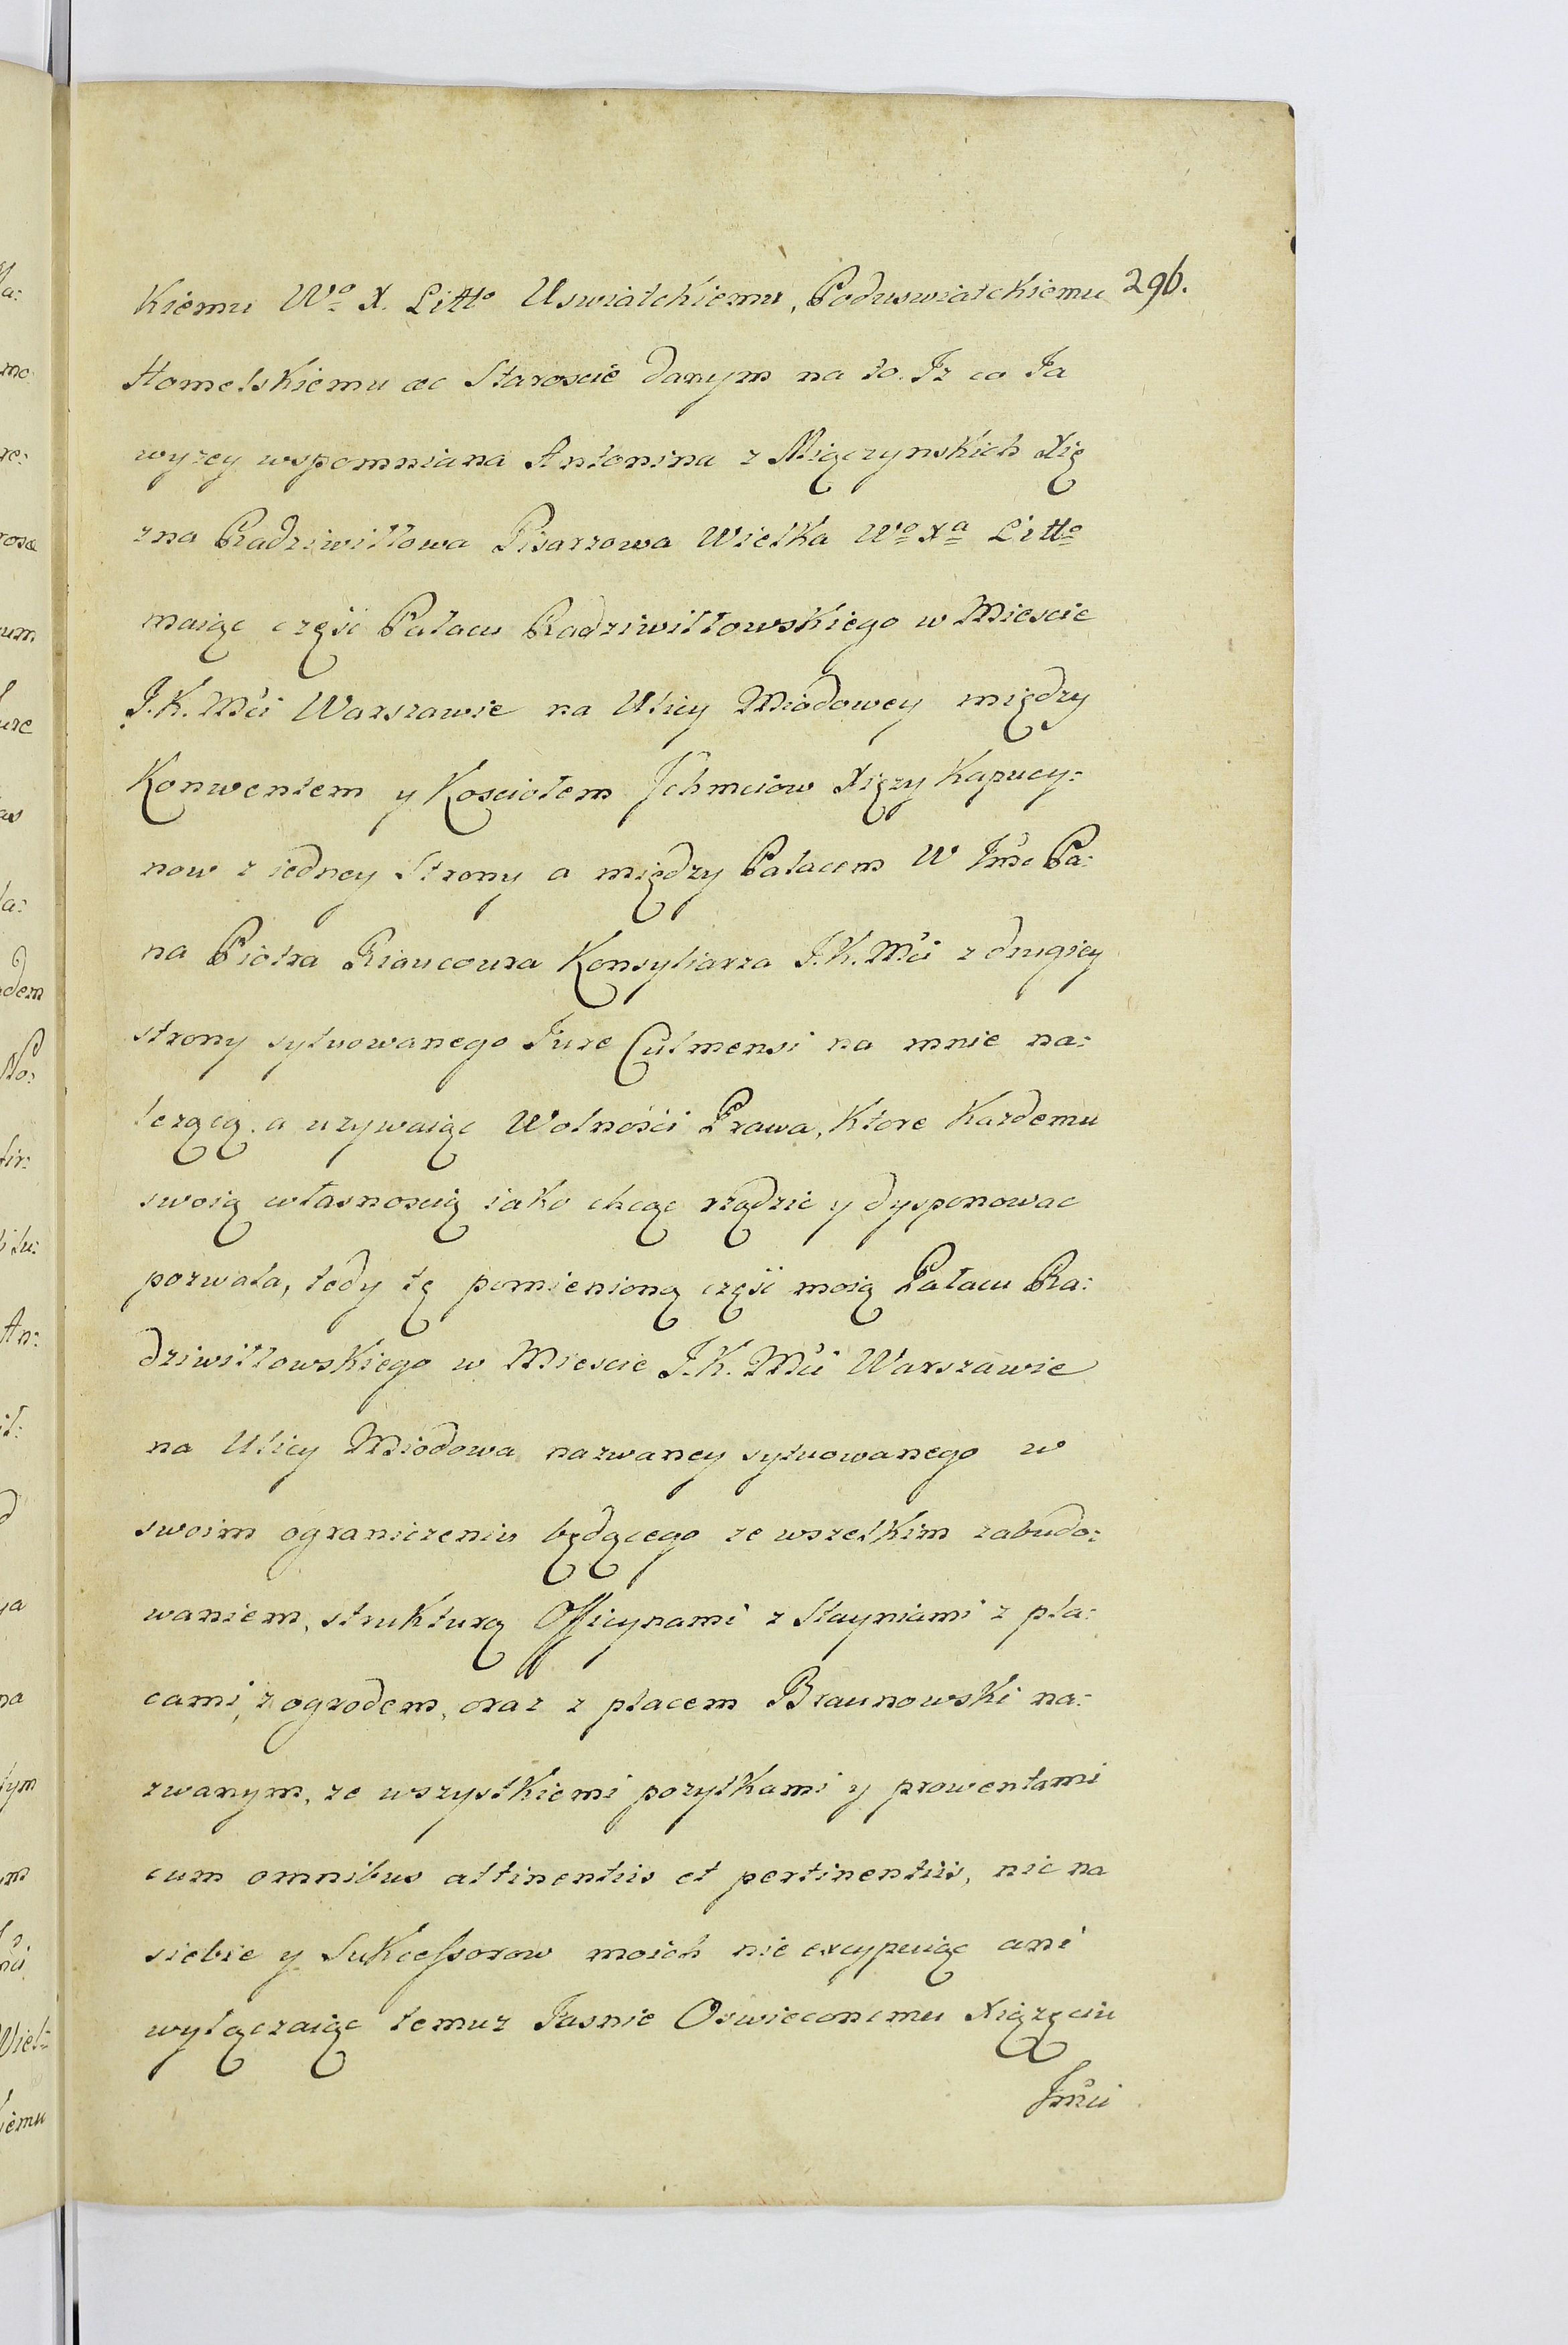 Kiemu Wo X. Litto Uswiatckiemu, Poduswiatckiemu 296.
Homelskiemu &c Staroscie danym na to. Iz co Ja
wyzey wspomniana Antonina z Miączynskich Xię
zna Radziwiłłowa Pisarzowa Wielka Wo Xa Litto
maiąc część Pałacu Radziwiłłowskiego w Miescie
J.K.Mci Warszawie na Ulicy Miodowey między
Konwentem y Kosciołem Ichmciow Xięzy Kapucy:
now z iedney Strony a między Pałacem W Jmc Pa:
na Piotra Riaucoura Konsyliarza J.K.Mci z drugiey
strony sytuowanego Jure Culmensi na mnie na:
lezącą. a uzywaiąc Wolności Prawa, Ktore Kazdemu
swoią własnoscią iako chcąc rządzic y dysponowac
pozwala, tedy tę pomienioną część moią Pałacu Ra:
dziwiłłowskiego w Miescie J.K.Mci Warszawie
na Ulicy Miodowa nazwaney sytuowanego w
swoim ograniczeniu będącego ze wszelkim zabudo:
waniem, strukturą Officynami z Stayniami z pla:
cami, z ogrodem, oraz z placem Braunowski na:
zwanym, ze wszystkiemi pozytkami y prowentami
cum omnibus attinentiis et pertinentiis, nic na
siebie y Sukcessorow moich nie excypuiąc ani
wyłączaiąc temuz Jasnie Oswieconemu Xiązęciu
Jmci